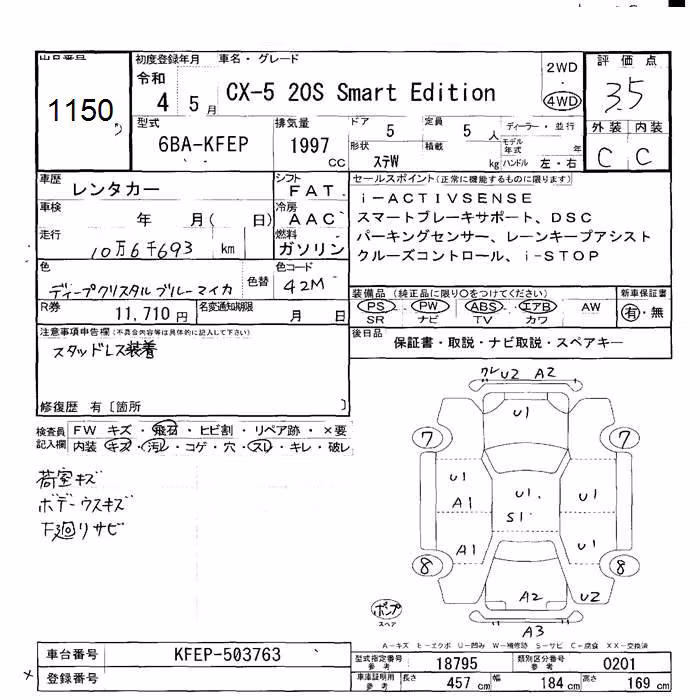 出品番号
1150
初度登録年月
令和
4 5月
車名・グレード
CX-5 20S Smart Edition
2WD
4WD
評価点
3.5
型式
6BA-KFEP
排気量
1997
cc
ドア
5
定員
5人
ディーラー・並行
モデル年式 年
形状
ステW
積載
kg
ハンドル 左・右
外装 内装
C C
車歴
レンタカー
シフト
FAT
セールスポイント(正常に機能するものに限ります)
i-ACTIVSENSE
スマートブレーキサポート、DSC
パーキングセンサー、レーンキープアシスト
クルーズコントロール、i-STOP
車検
年 月( 日)
冷房
AAC
走行
10万6千693 km
燃料
ガソリン
色
ディープクリスタルブルーマイカ
色替
色コード
42M
装備品(純正品に限り○をつけてください)
PS・PW・ABS・エアB・AW
SR ナビ TV カワ
新車保証書
有・無
R券
11,710円
名変通知期限
月 日
後日品
保証書・取説・ナビ取説・スペアキー
注意事項申告欄(不具合内容等は具体的に記入して下さい)
スタッドレス装着
修復歴 有〔箇所 〕
検査員記入欄
FW キズ・飛石・ヒビ割・リペア跡・×要
内装 キズ・汚れ・コゲ・穴・スレ・キレ・破レ
荷室キズ
ボデーウスキズ
下廻りサビ
クレ U2 A2
U1
7 7
U1
A1
U1.
S1
U1
A1
U1
8 8
A2
U2
A3
ポンプ
スペア
A-キズ E-エクボ U-凹み W-補修跡 S-サビ C-腐食 XX-交換済
車台番号
KFEP-503763
登録番号
型式指定番号
参考
18795
類別区分番号
参考
0201
車庫証明用
参考
長さ 457 cm 幅 184 cm 高さ 169 cm